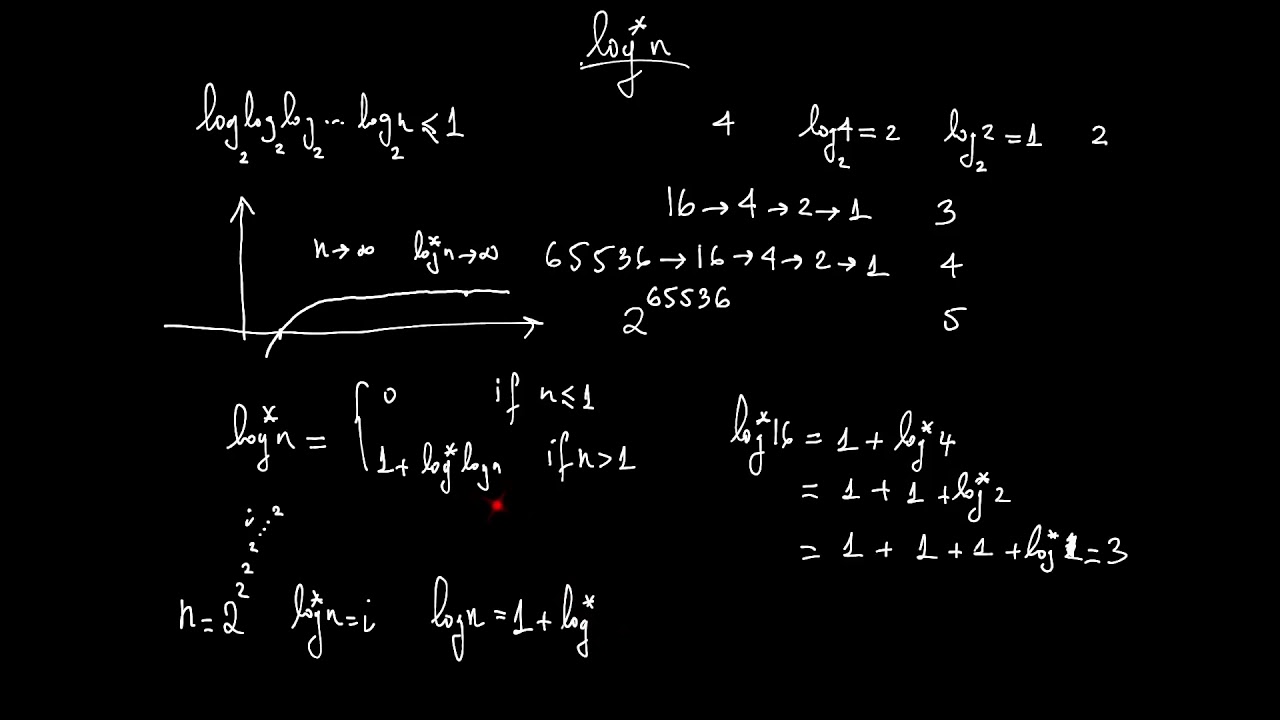 log* n
log₂ log₂ log₂ ... log₂ n ≤ 1
4 log₂4 = 2 log₂2 = 1 2
16 → 4 → 2 → 1 3
n → ∞ log* n → ∞
65536 → 16 → 4 → 2 → 1 4
2^65536 5
log* n = { 0 if n ≤ 1
1 + log* log n if n > 1
log* 16 = 1 + log* 4
= 1 + 1 + log* 2
= 1 + 1 + 1 + log* 1 = 3
n = 2^2^2^2^⋰^2 i log* n = i log n = 1 + log*